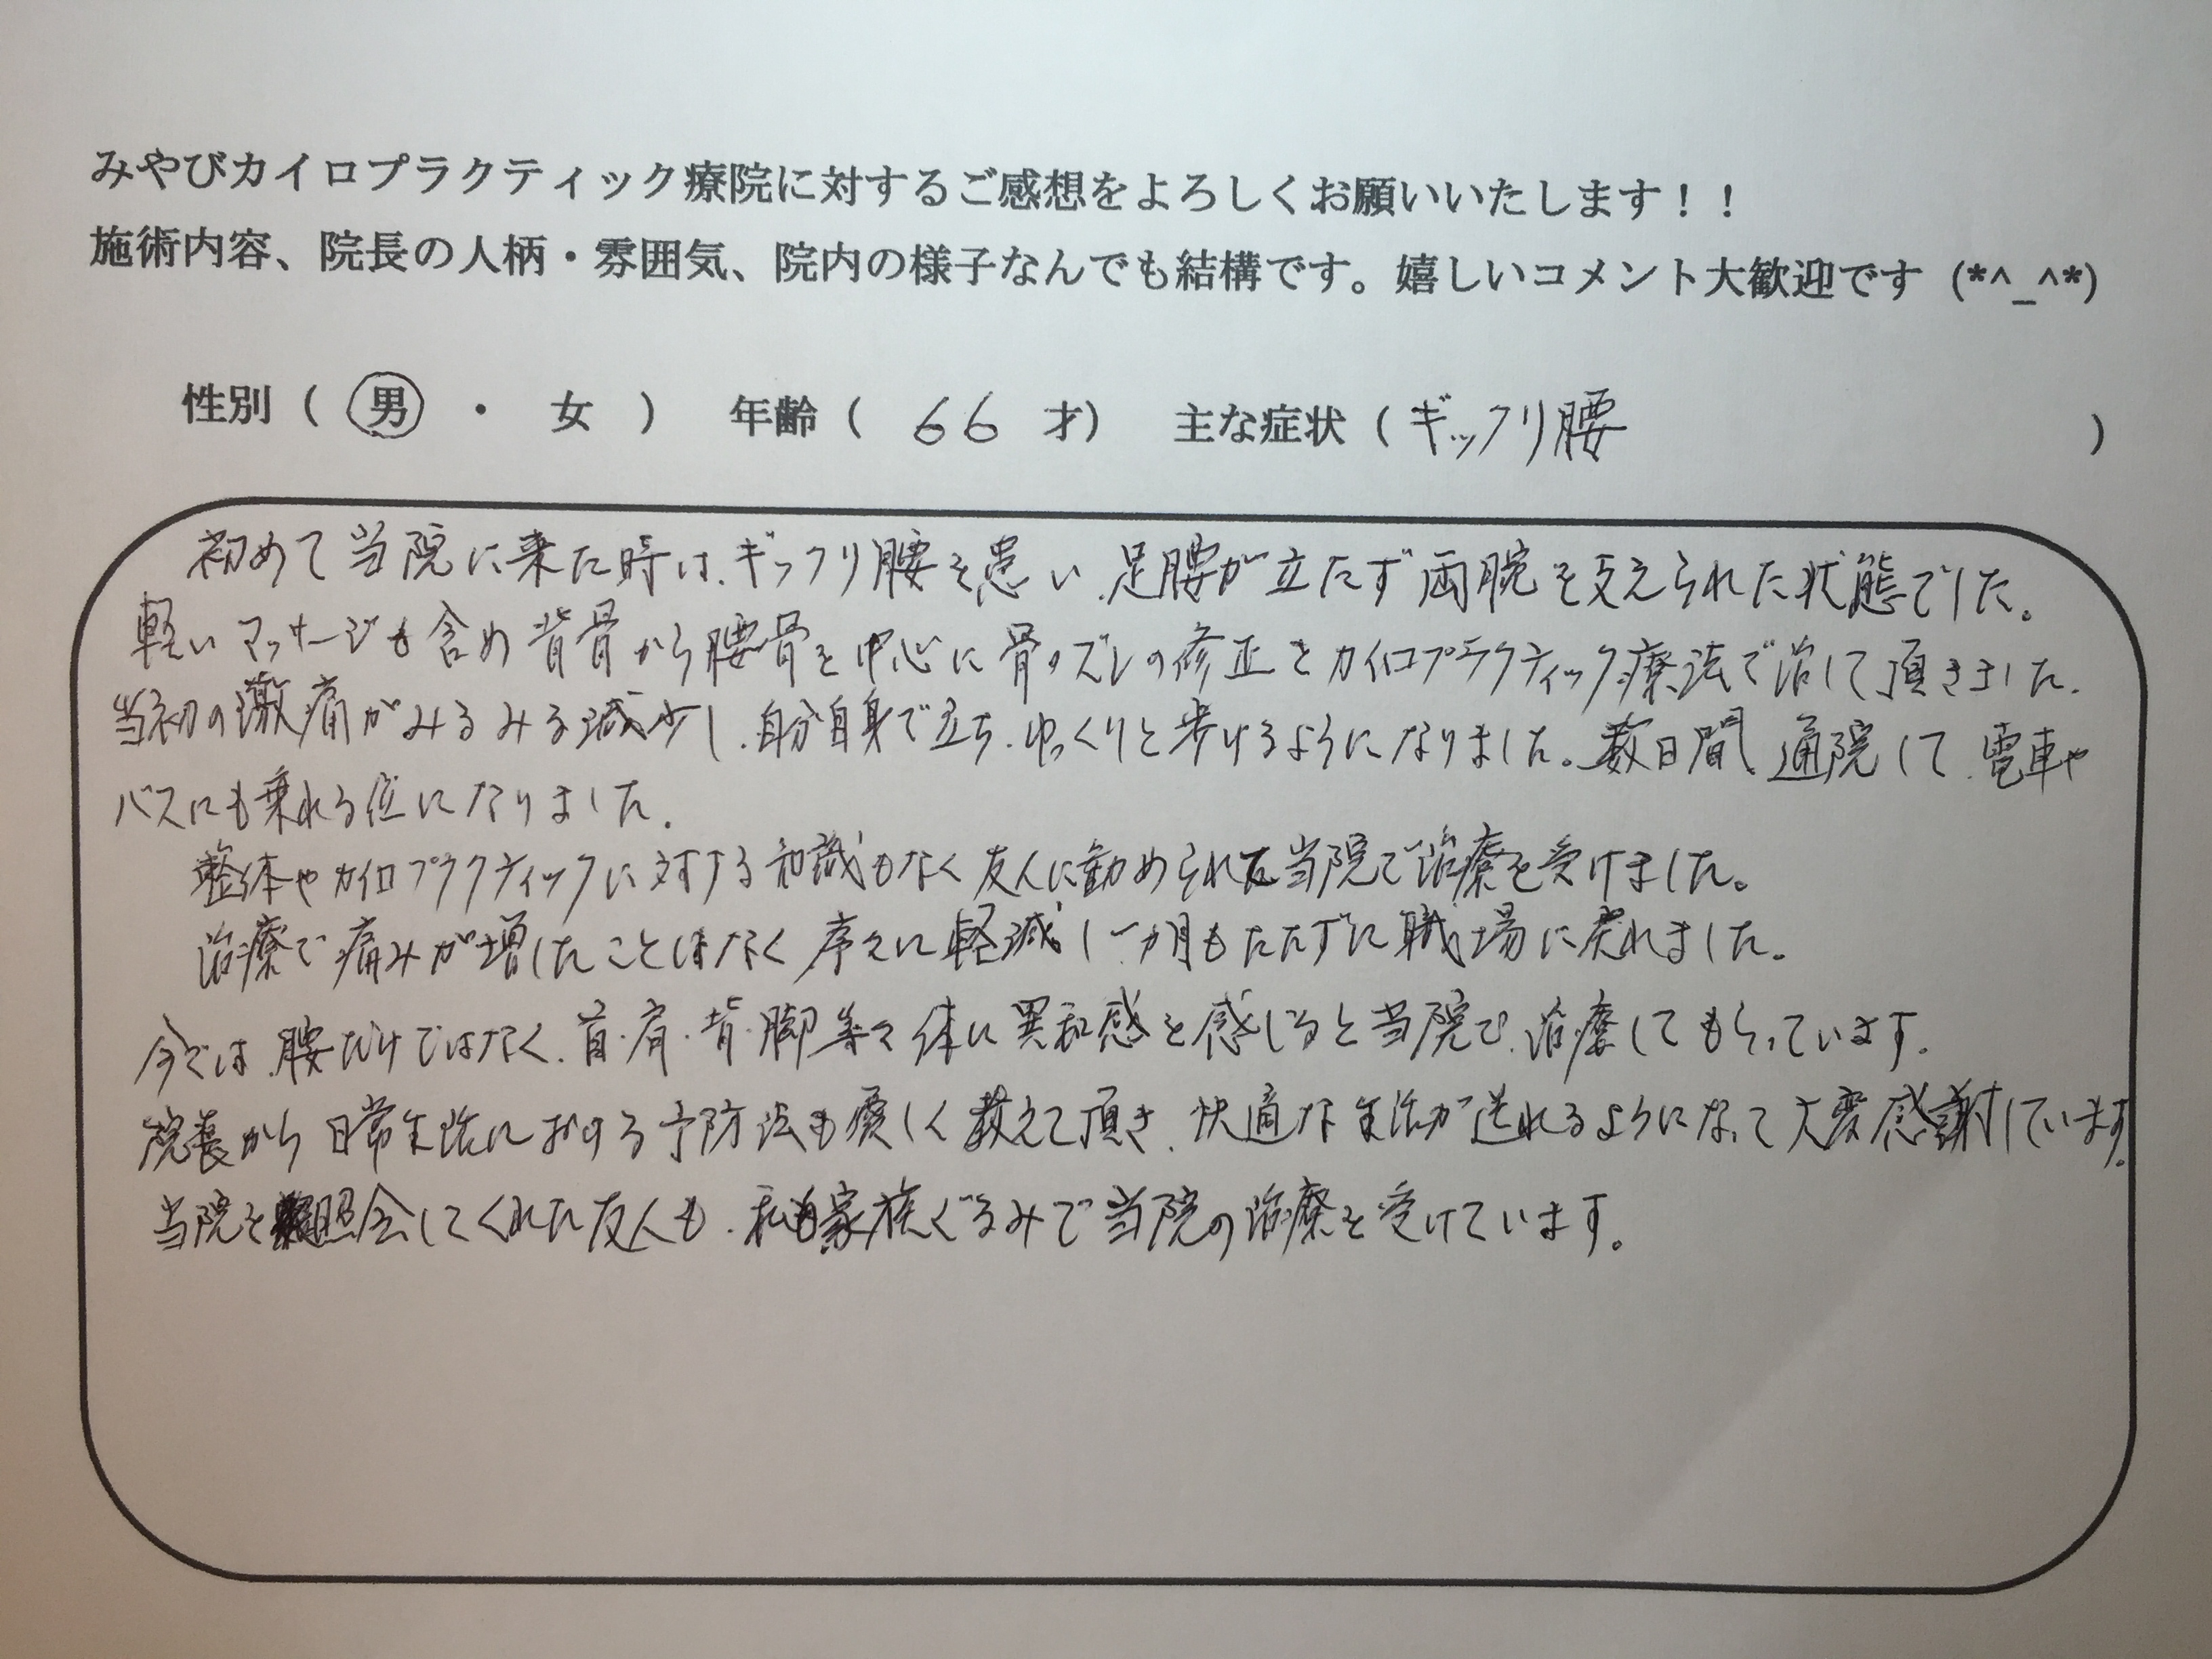 みやびカイロプラクティック療院に対するご感想をよろしくお願いいたします！！
施術内容、院長の人柄・雰囲気、院内の様子なんでも結構です。嬉しいコメント大歓迎です (*^_^*)
性別（ 男 ・ 女 ） 年齢（ 66 才） 主な症状（ギックリ腰 ）
初めて当院に来た時は、ギックリ腰を患い、足腰が立たず両腕を支えられた状態でした。
軽いマッサージも含め背骨から腰骨を中心に骨のズレの修正をカイロプラクティック療法で治して頂きました。
当初の激痛がみるみる減少し、自分自身で立ち、ゆっくりと歩けるようになりました。数日間、通院して、電車や
バスにも乗れる位になりました。
整体やカイロプラクティックに対する知識もなく友人に勧められて当院で治療を受けました。
治療で痛みが増したことはなく序々に軽減し一ヵ月もたたずに職場に戻れました。
今では、腰だけではなく、首・肩・背・脚等々体に異和感を感じると当院で、治療してもらっています。
院長から日常生活における予防法も優しく教えて頂き、快適な生活が送れるようになって大変感謝しています。
当院を照会してくれた友人も、私も家族ぐるみで当院の治療を受けています。